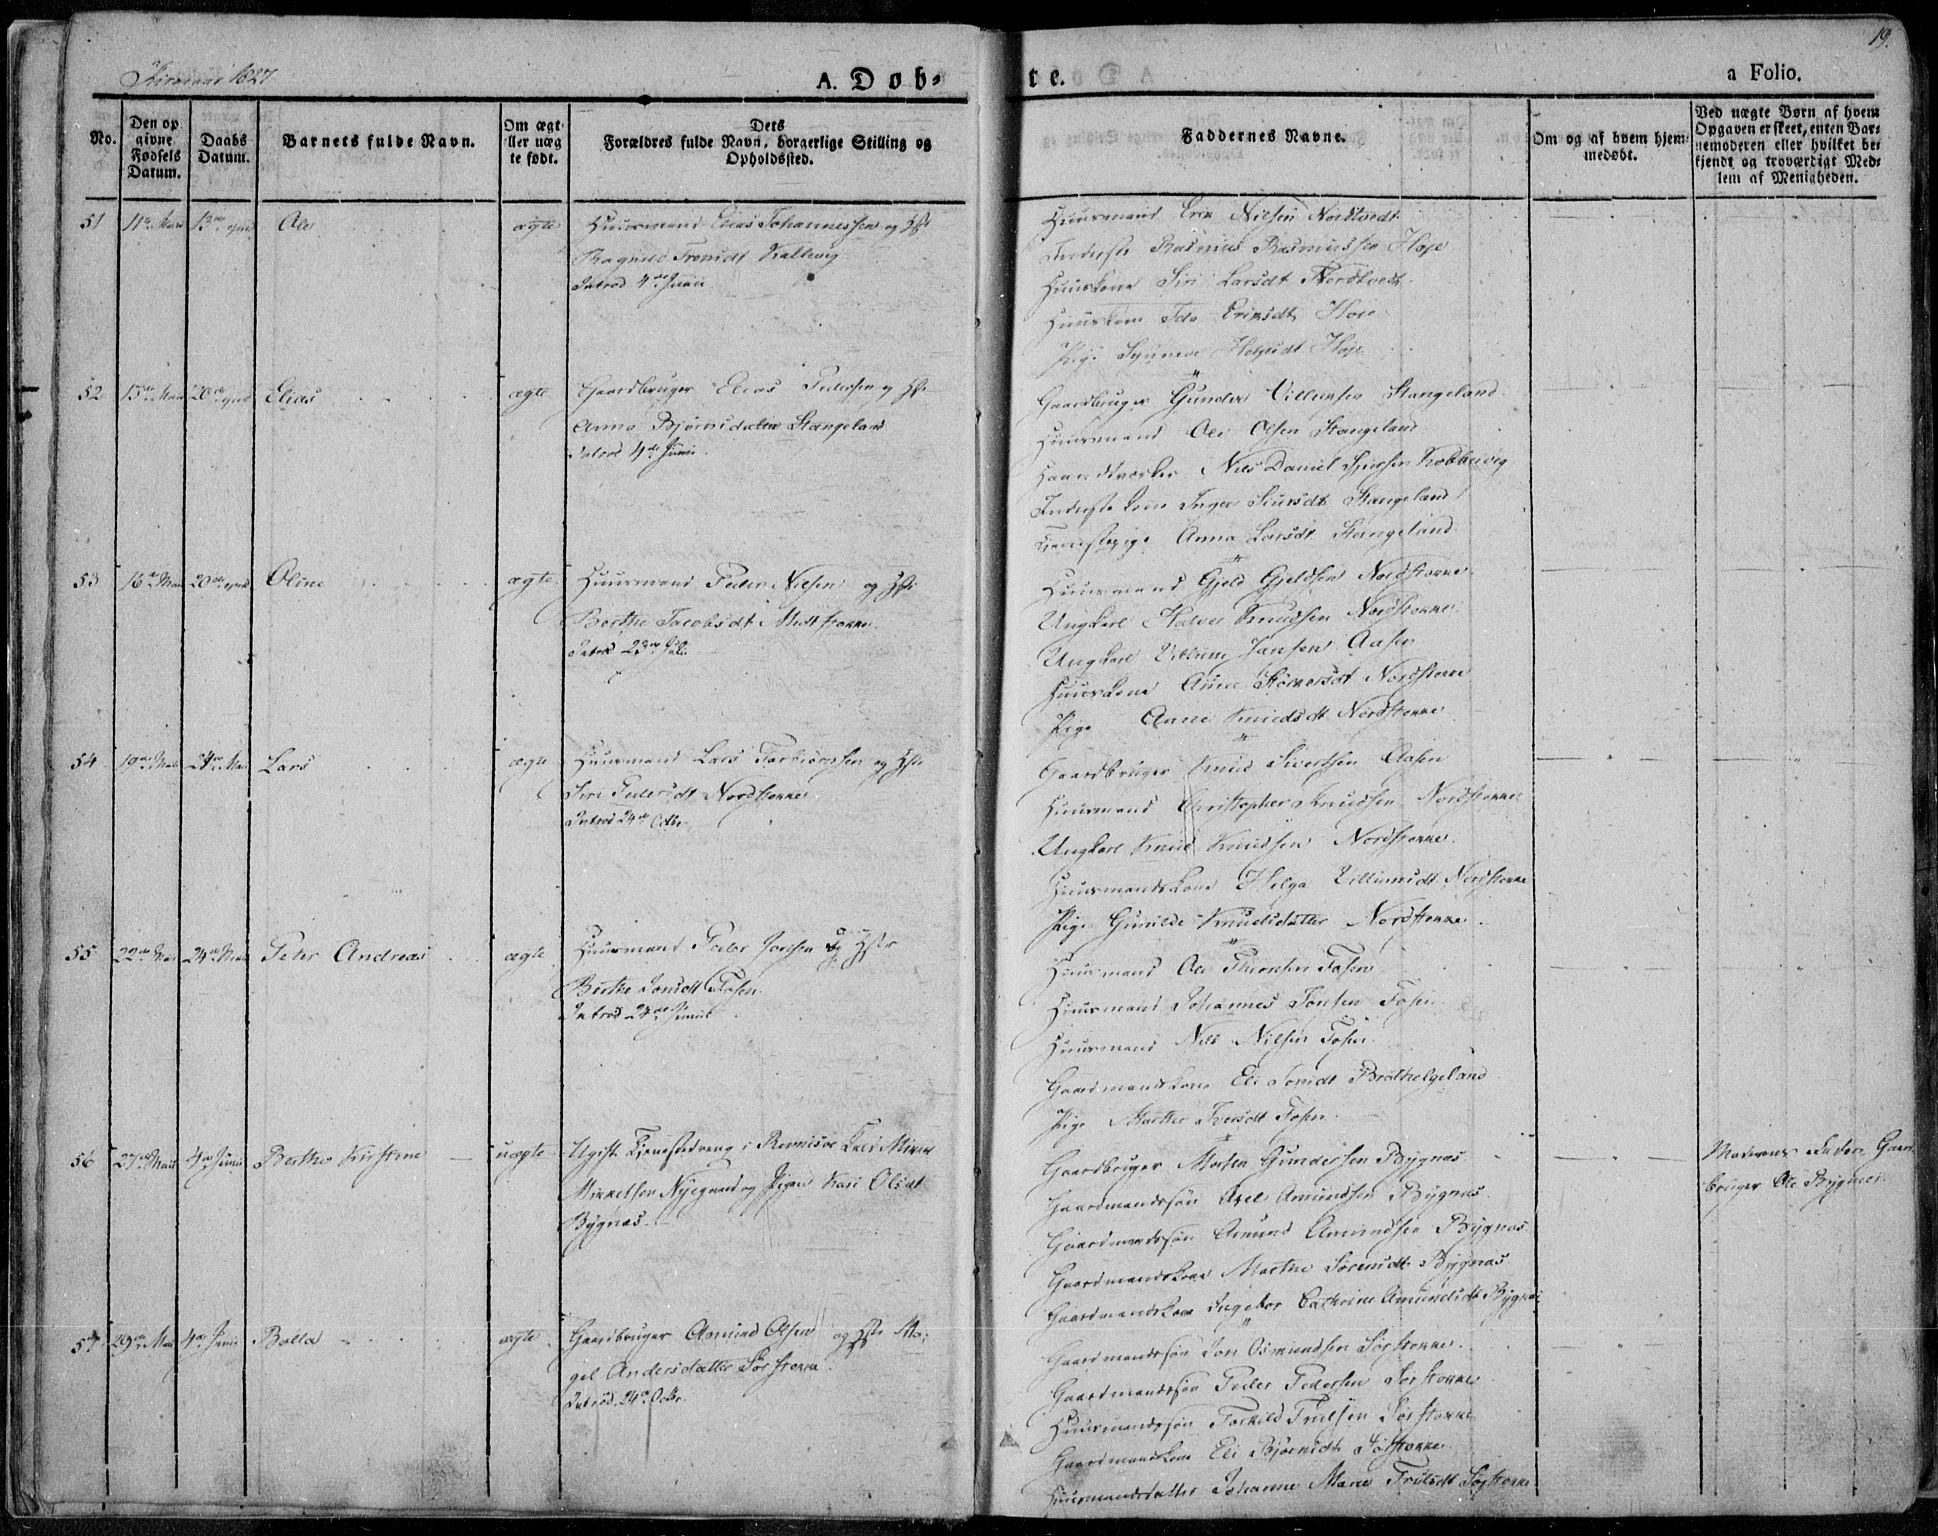 19.
Kirkeaar 1827
A. Døb-
te.
a Folio.
No.
Den op
givne
Fødsels
Datum.
Daabs
Datum.
Barnets fulde Navn.
Om ægt
ller uæg
te født.
Dets
Forældres fulde Navn, borgerlige Stilling og
Opholdssted.
Faddernes Navne.
Om og af hvem hjem-
medøbt.
Ved uægte Børn af hvem
Opgaven er skeet, enten Bar-
nemoderen eller hvilket be-
kjendt og troværdigt Med-
lem af Menigheden.
51 11te Mai 13de Ole ægte Huusmand Elias Johannessen og Hst
Ragnild Kaltveig
Introd 4de Junii
Huusmand Erik Nielsen Nordtvedt
Inderste Rasmus Rasmussen Høje
Huuskone Siri Larsdt Nordtvedt
Huuskone Ida Eriksdt Høie
Pige Helgesdt Høje
52 15de Mai 20de Elias ægte Gaardbruger Elias Pedersen og Hst
Anna Bjørnsdatter Stangeland
Introd 4de Junii.
Gaardbruger Gunder Villumsen Stangeland
Huusmand Ole Olsen Stangeland
Haandtværker Nils Daniel Kobbervig
Inderstekone Inger Siursdt Stangeland
Tjenestepige Anna Larsdt Stangeland
53 16de Mai 20de Oline ægte Huusmand Peder Nielsen og Hst
Berthe Jacobsdt Midtstokke.
Introd 23de Juli
Huusmand Gjeld Gjeldsen Nordstokke
Ungkarl Halvor Knudsen Nordstokke
Ungkarl Villum Jansen Aasen
Huuskone Anne Nordstokke
Pige Anne Knudsdt Nordstokke
54 19de Mai 24de Mai Lars ægte Huusmand Lars Torbiørnsen og Hst
Siri Pedersdt Nordstokke.
Introd 24de Octbr.
Gaardbruger Knud Sivertsen Aasen
Huusmand Christopher Knudsen Nordstokke
Ungkarl Knud Knudsen Nordstokke
Huusmandskone Helga Villumsdt Nordstokke
Pige Gunilde Knudsdatter Nordstokke
55 22de Mai 24de Mai Peter Andreas ægte Huusmand Peder og Hstr
Berthe Jonsdt Fosen.
Introd 24de Junii
Huusmand Ole Thorsen Fosen
Huusmand Johannes Jonsen Fosen
Huusmand Nils Nilsen Fosen
Gaardmandskone Eli Jonsdt Brækkelgeland
Pige Marthe Iversdt Fosen
56 27de Mai 4de Junii Berthe Kirstine uægte Ugift Tjenestedreng i
Mikkelsen Nyegaard og Pigen Kari Olsdt
Bygnes.
Gaardbruger Morten Gundersen Bygnes
Gaardmandssøn Axel Amundsen Bygnes
Gaardmandssøn Amund Amundsen Bygnes
Gaardmandskone Marthe Sørensdt Bygnes
Gaardmandskone Ingebor Cathrine Amundsdt Bygnes
Moderens Fader Gaard
bruger Ole Bygnes
57 29de Mai 4de Junii Bolla ægte Gaardbruger Aamund Olsen og Hst Ma-
gel Andersdatter Sørstokke
Introd. 24de Octbr.
Gaardmandssøn Jon Osmundsen Sørstokke
Gaardmandssøn Peder Pedersen Sørstokke
Huusmandssøn Torkild Trulsen Sørstokke
Gaardmandskone Eli Bjørnsdt Sørstokke
Huusmandsdatter Johanne Marie Trulsdt Sørstokke